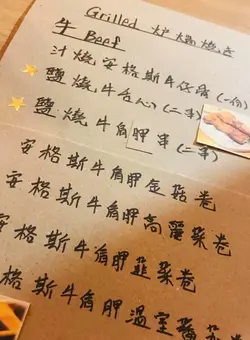 Grilled 炉端燒き
牛 Beef
汁燒安格斯牛仔骨(一份)
鹽燒牛舌心(二串)
鹽燒牛肩胛串(二串)
安格斯牛肩胛金菇卷
安格斯牛肩胛高麗菜卷
安格斯牛肩胛韭菜卷
格斯牛肩胛溫室